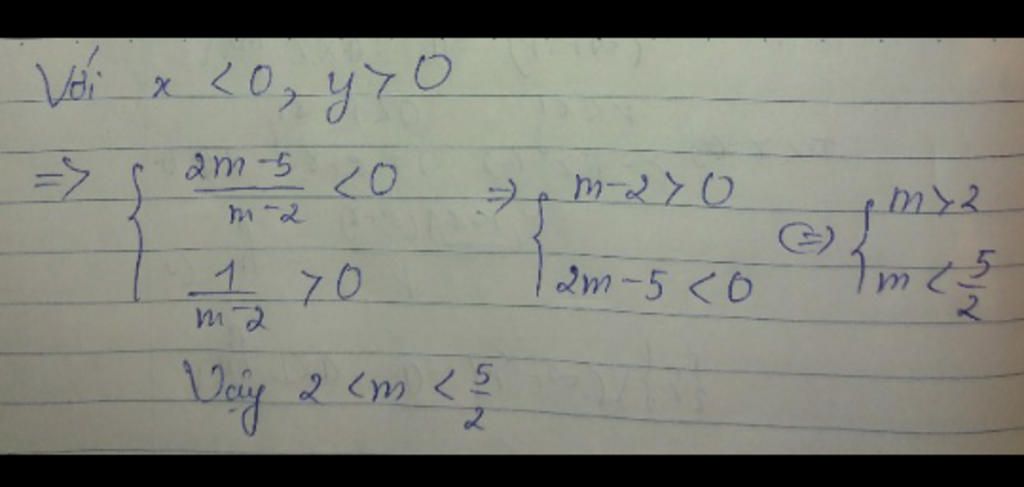 Với x < 0, y > 0
=> { (2m-5)/(m-2) < 0 => { m-2 > 0 <=> { m > 2
1/(m-2) > 0 2m-5 < 0 m < 5/2
Vậy 2 < m < 5/2